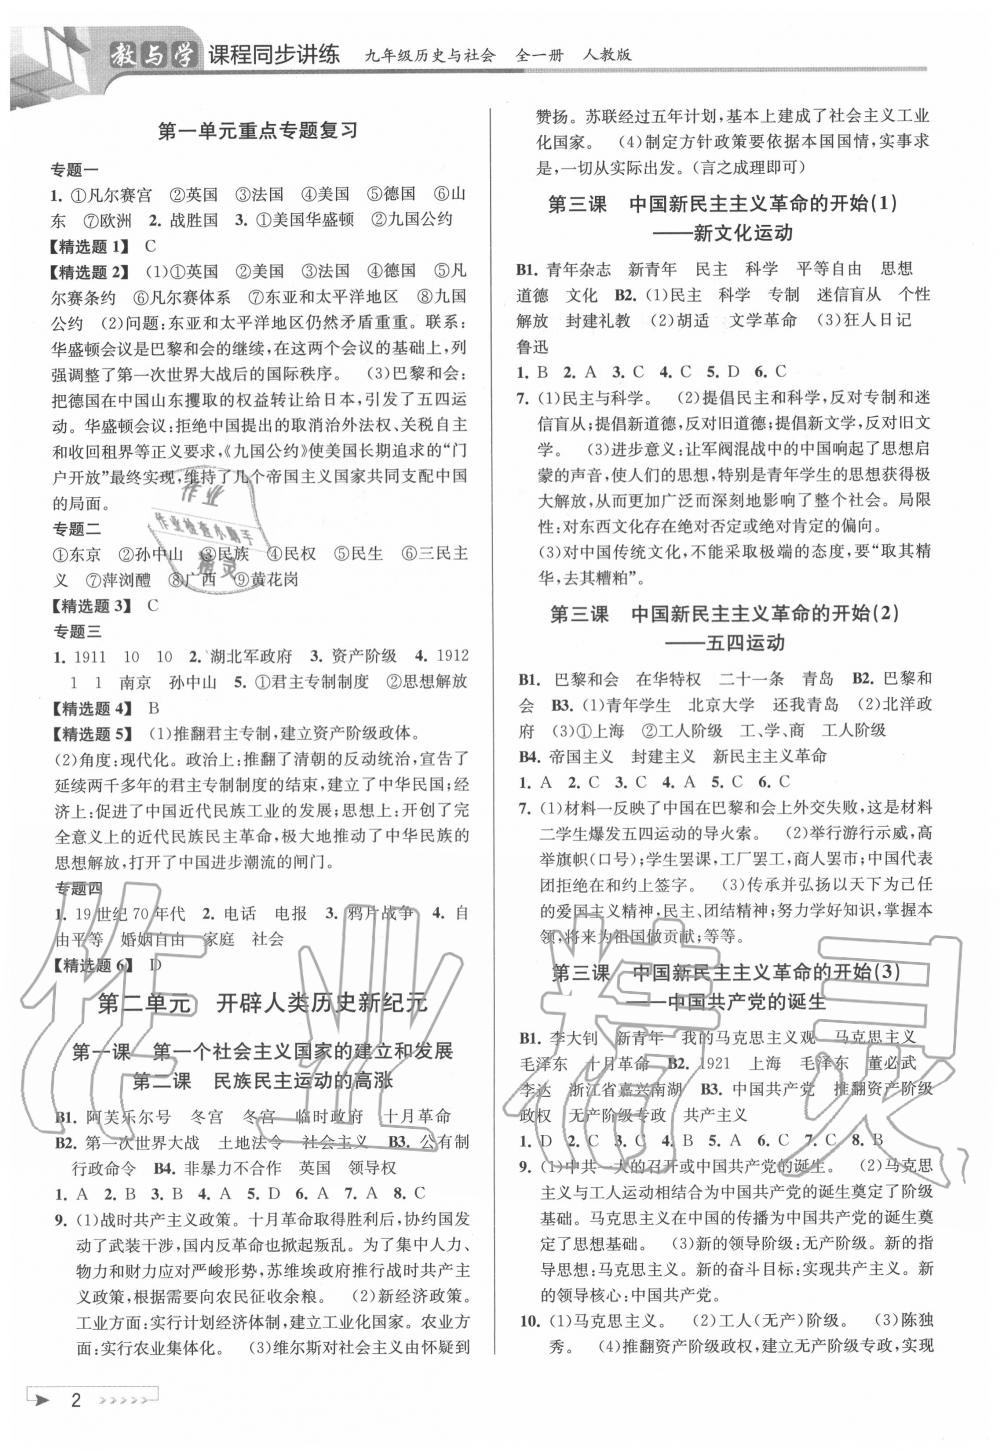 教与学 课程同步讲练 九年级历史与社会 全一册 人教版
第一单元重点专题复习
专题一
1. ①凡尔赛宫 ②英国 ③法国 ④美国 ⑤德国 ⑥山
东 ⑦欧洲 2. 战胜国 3. ①美国华盛顿 ②九国公约
【精选题1】 C
【精选题2】 (1)①英国 ②美国 ③法国 ④德国 ⑤凡
尔赛条约 ⑥凡尔赛体系 ⑦东亚和太平洋地区 ⑧九国
公约 (2)问题:东亚和太平洋地区仍然矛盾重重。联系:
华盛顿会议是巴黎和会的继续,在这两个会议的基础上,列
强调整了第一次世界大战后的国际秩序。 (3)巴黎和会:
把德国在中国山东攫取的权益转让给日本,引发了五四运
动。华盛顿会议:拒绝中国提出的取消治外法权、关税自主
和收回租界等正义要求,《九国公约》使美国长期追求的“门
户开放”最终实现,维持了几个帝国主义国家共同支配中国
的局面。
专题二
①东京 ②孙中山 ③民族 ④民权 ⑤民生 ⑥三民主
义 ⑦萍浏醴 ⑧广西 ⑨黄花岗
【精选题3】 C
专题三
1. 1911 10 10 2. 湖北军政府 3. 资产阶级 4. 1912
1 1 南京 孙中山 5. ①君主专制制度 ②思想解放
【精选题4】 B
【精选题5】 (1)推翻君主专制,建立资产阶级政体。
(2)角度:现代化。政治上:推翻了清朝的反动统治,宣告了
延续两千多年的君主专制制度的结束,建立了中华民国;经
济上:促进了中国近代民族工业的发展;思想上:开创了完
全意义上的近代民族民主革命,极大地推动了中华民族的
思想解放,打开了中国进步潮流的闸门。
专题四
1. 19世纪70年代 2. 电话 电报 3. 鸦片战争 4. 自
由平等 婚姻自由 家庭 社会
【精选题6】 D
第二单元 开辟人类历史新纪元
第一课 第一个社会主义国家的建立和发展
第二课 民族民主运动的高涨
B1. 阿芙乐尔号 冬宫 冬宫 临时政府 十月革命
B2. 第一次世界大战 土地法令 社会主义 B3. 公有制
行政命令 B4. 非暴力不合作 英国 领导权
1. A 2. B 3. C 4. D 5. C 6. A 7. A 8. C
9. (1)战时共产主义政策。十月革命取得胜利后,协约国发
动了武装干涉,国内反革命也掀起叛乱。为了集中人力、
物力和财力应对严峻形势,苏维埃政府推行战时共产主
义政策,根据需要向农民征收余粮。 (2)新经济政策。
工业方面:实行计划经济体制,建立工业化国家。农业方
面:实行农业集体化。 (3)维尔斯对共产主义由怀疑到
赞扬。苏联经过五年计划,基本上建成了社会主义工业
化国家。 (4)制定方针政策要依据本国国情,实事求
是,一切从实际出发。(言之成理即可)
第三课 中国新民主主义革命的开始(1)
——新文化运动
B1. 青年杂志 新青年 民主 科学 平等自由 思想
道德 文化 B2. (1)民主 科学 专制 迷信盲从 个性
解放 封建礼教 (2)胡适 文学革命 (3)狂人日记
鲁迅
1. B 2. A 3. C 4. C 5. D 6. C
7. (1)民主与科学。 (2)提倡民主和科学,反对专制和迷
信盲从;提倡新道德,反对旧道德;提倡新文学,反对旧文
学。 (3)进步意义:让军阀混战中的中国响起了思想启
蒙的声音,使人们的思想,特别是青年学生的思想获得极
大解放,从而更加广泛而深刻地影响了整个社会。局限
性:对东西文化存在绝对否定或绝对肯定的偏向。
(3)对中国传统文化,不能采取极端的态度,要“取其精
华,去其糟粕”。
第三课 中国新民主主义革命的开始(2)
——五四运动
B1. 巴黎和会 在华特权 二十一条 青岛 B2. 巴黎和
会 B3. (1)青年学生 北京大学 还我青岛 (2)北洋政
府 (3)①上海 ②工人阶级 工、学、商 工人阶级
B4. 帝国主义 封建主义 新民主主义革命
1. A 2. C 3. C 4. A 5. C 6. C
7. (1)材料一反映了中国在巴黎和会上外交失败,这是材料
二学生爆发五四运动的导火索。 (2)举行游行示威,高
举旗帜(口号);学生罢课,工厂罢工,商人罢市;中国代表
团拒绝在和约上签字。 (3)传承并弘扬以天下为己任
的爱国主义精神,民主、团结精神;努力学好知识,掌握本
领,将来为祖国做贡献;等等。
第三课 中国新民主主义革命的开始(3)
——中国共产党的诞生
B1. 李大钊 新青年 我的马克思主义观 马克思主义
毛泽东 十月革命 B2. 1921 上海 毛泽东 董必武
李达 浙江省嘉兴南湖 B3. 中国共产党 推翻资产阶级
政权 无产阶级专政 共产主义
1. D 2. C 3. C 4. B 5. C 6. C 7. C 8. B
9. (1)中共一大的召开或中国共产党的诞生。 (2)马克思
主义与工人运动相结合为中国共产党的诞生奠定了阶级
基础。马克思主义在中国的传播为中国共产党的诞生奠
定了思想基础。 (3)新的领导阶级:无产阶级。新的指
导思想:马克思主义。新的奋斗目标:实现共产主义。新
的领导核心:中国共产党。
10. (1)马克思主义。 (2)工人(无产)阶级。 (3)陈独
秀。 (4)推翻资产阶级政权,建立无产阶级专政,实现
2
作业
作业检查小帮手
精灵
作业精灵